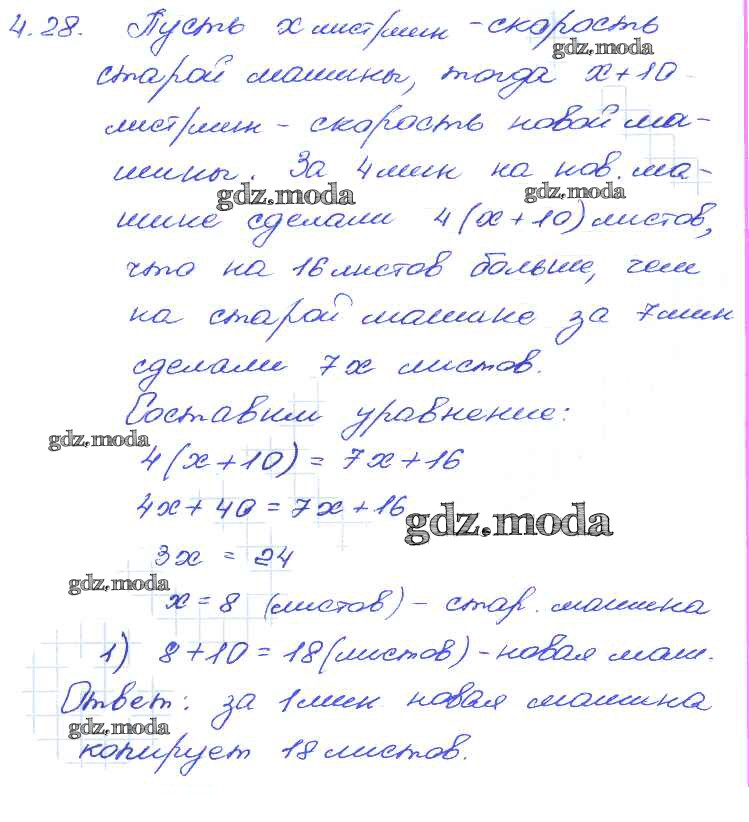 4.28. Пусть x лист/мин - скорость
gdz.moda
старой машины, тогда x+10
лист/мин - скорость новой ма-
шины. За 4 мин на нов. ма-
gdz.moda gdz.moda
шине сделали 4(x+10) листов,
что на 16 листов больше, чем
на старой машине за 7 мин
сделали 7x листов.
Составим уравнение:
gdz.moda
4(x+10) = 7x+16
4x+40 = 7x+16
gdz.moda
3x = 24
gdz.moda
x = 8 (листов) - стар. машина
1) 8+10 = 18 (листов) - новая маш.
Ответ: за 1 мин новая машина
gdz.moda
копирует 18 листов.